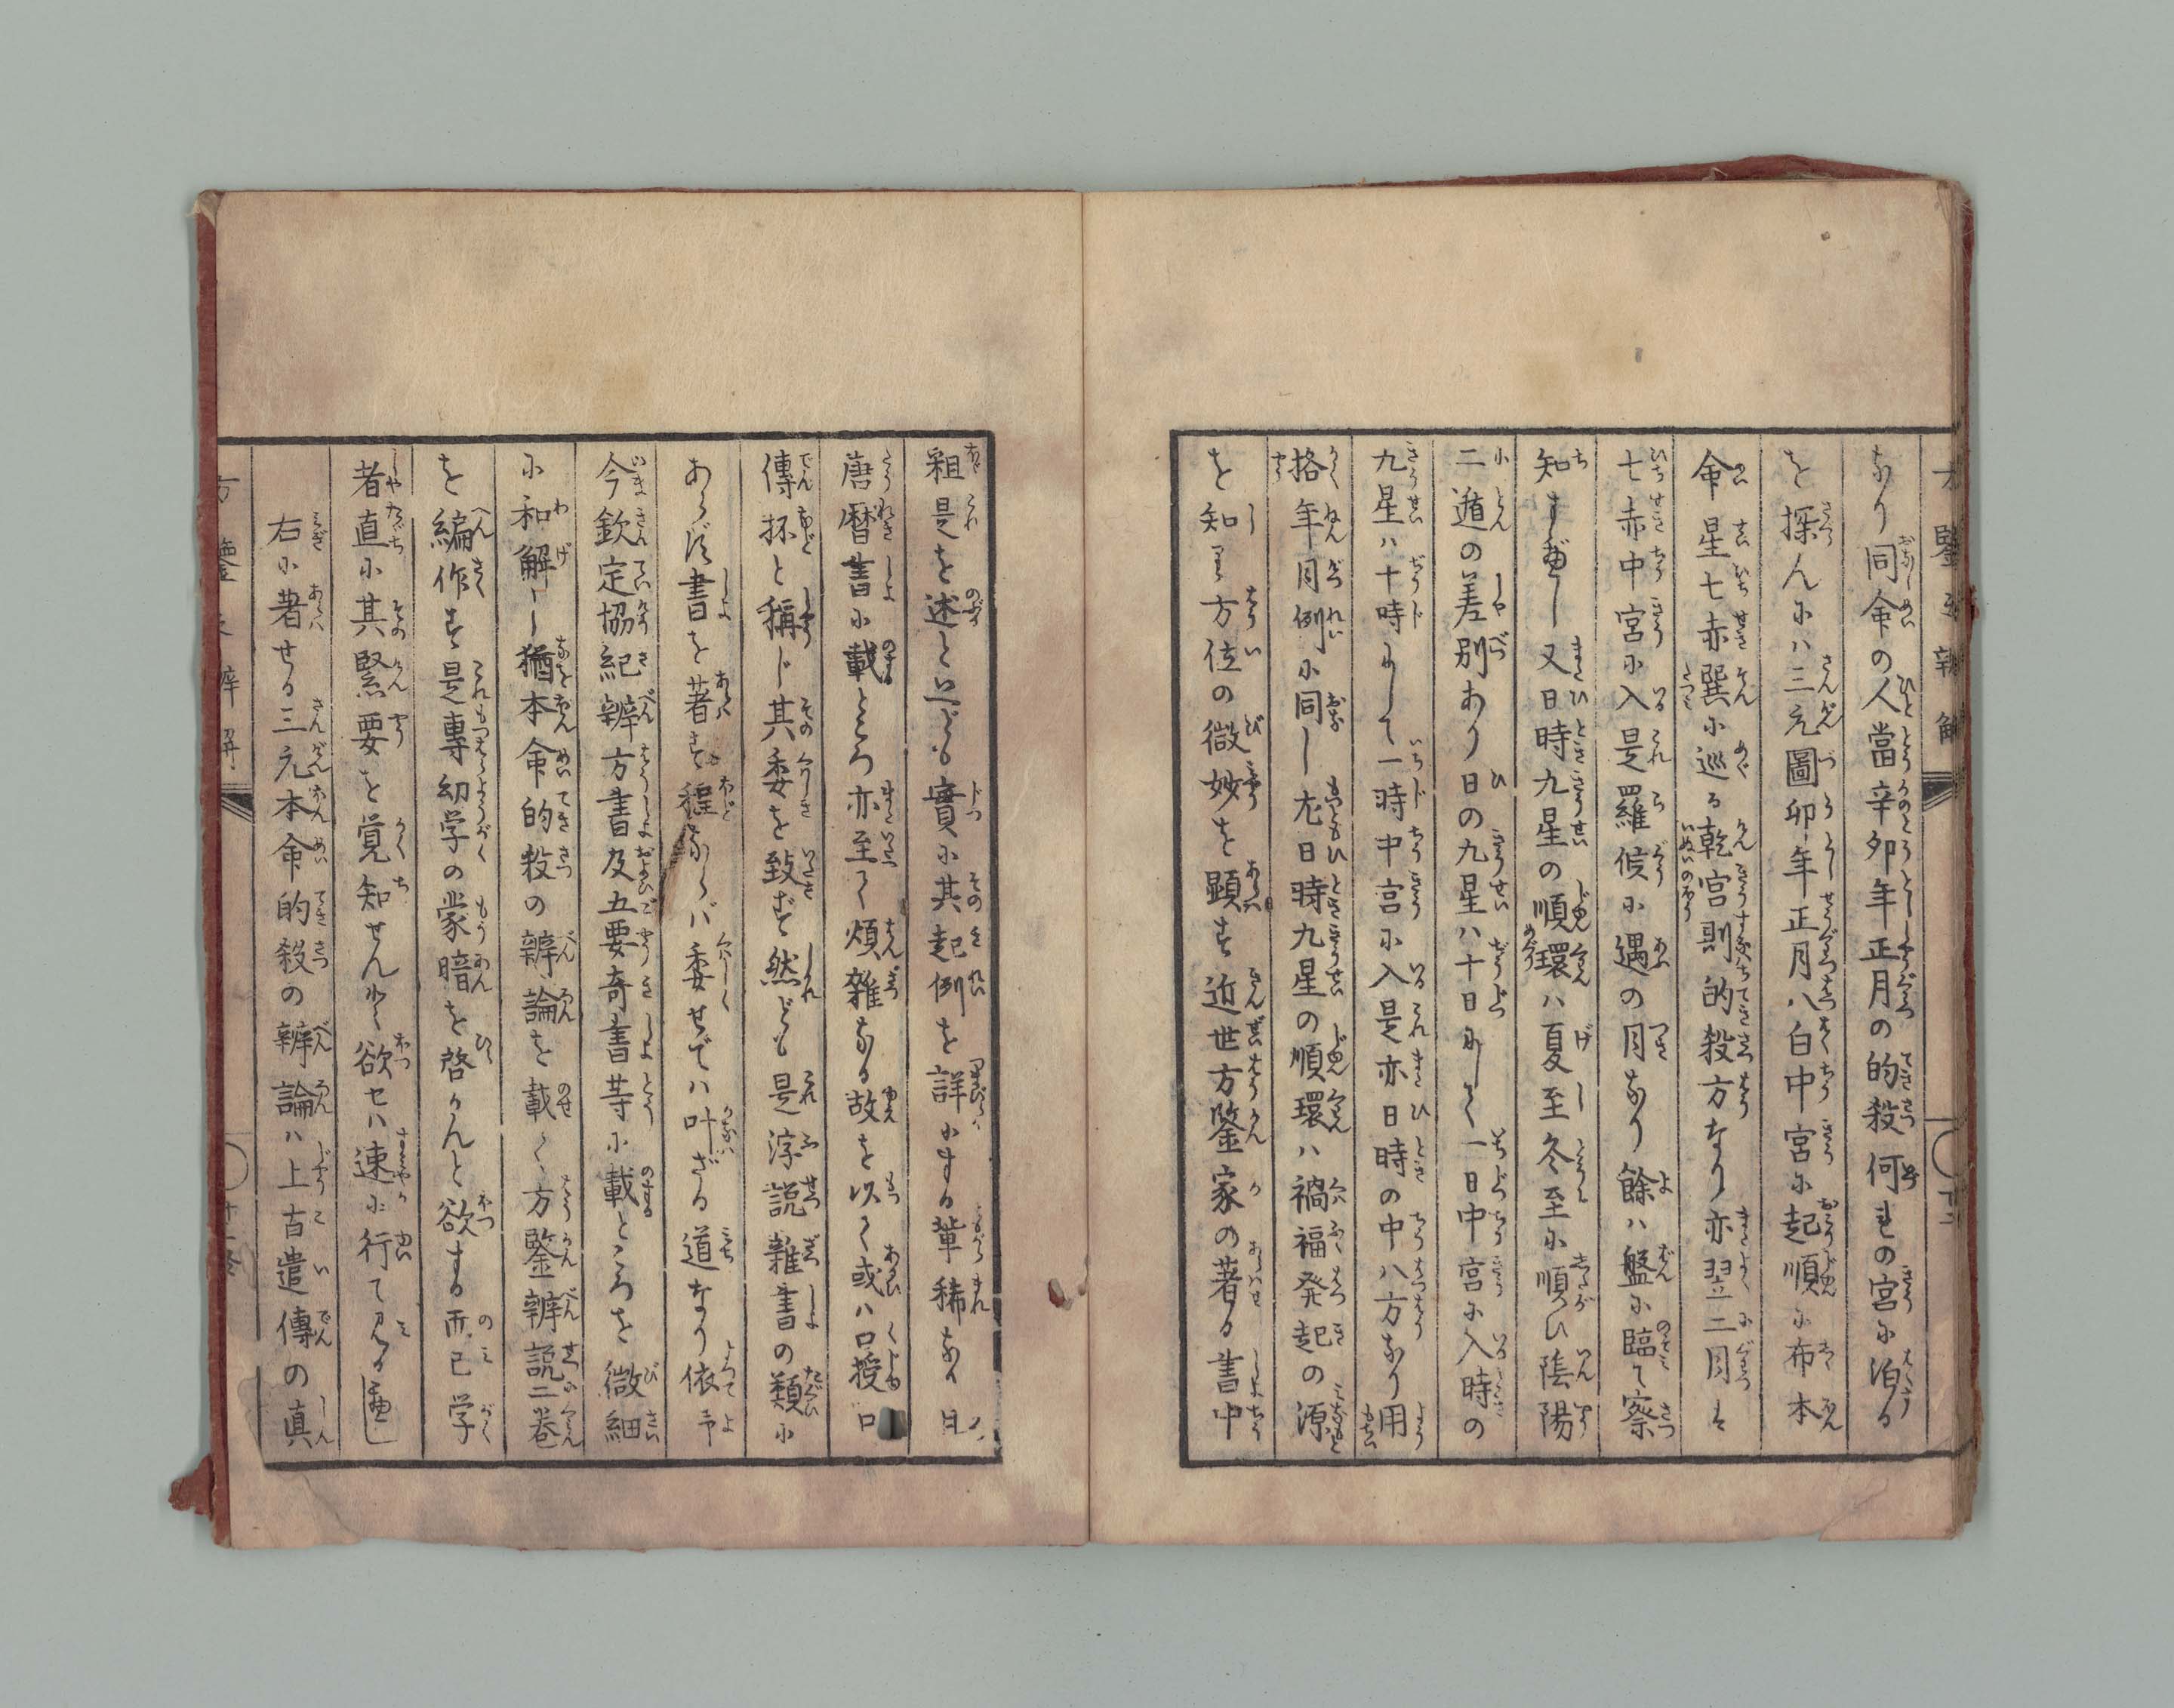 なり同命の人當辛夘年正月の的殺何まの宮に泊る
を探んには三元圖卯年正月八白中宮に起順に布本
命星七赤巽に巡る乾宮則的殺方なり亦翌二月は
七赤中宮に入是羅候に遇の月なり餘は盤に臨て察
知すべし又日時九星の順環は夏至冬至に順ひ陰陽
二遁の差別あり日の九星は十日にして一日中宮に入時の
九星は十時にして一時中宮に入是亦日時の中八方なり用
格年月例に同し尤日時九星の順環は禍福発起の源
を知り方位の微妙を顕す近世方鑒家の著る書中
粗是を述といへども實に其起例を詳にする輩稀なり曰
唐暦書に載ところ亦至て煩雑なる故を以て或は口授口
傳抔と稱じ其委を致ず然ども是浮説雜書の類に
あらず書を著す程ならば委せでは叶ざる道なり依予
今欽定協紀辨方書及五要奇書等に載ところを微細
に和解し猶本命的殺の辨論を載て方鑒辨説二巻
を編作す是專幼学の蒙暗を啓かんと欲する而已学
者直に其緊要を覚知せんと欲せは速に行て見る可
右に著せる三元本命的殺の辨論は上古遺傳の真